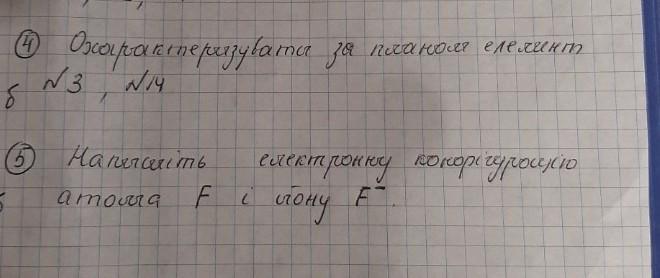 ④ Охарактеризувати за планом елемент
№3, №14
⑤ Напишіть електронну конфігурацію
атома F і йону F⁻.